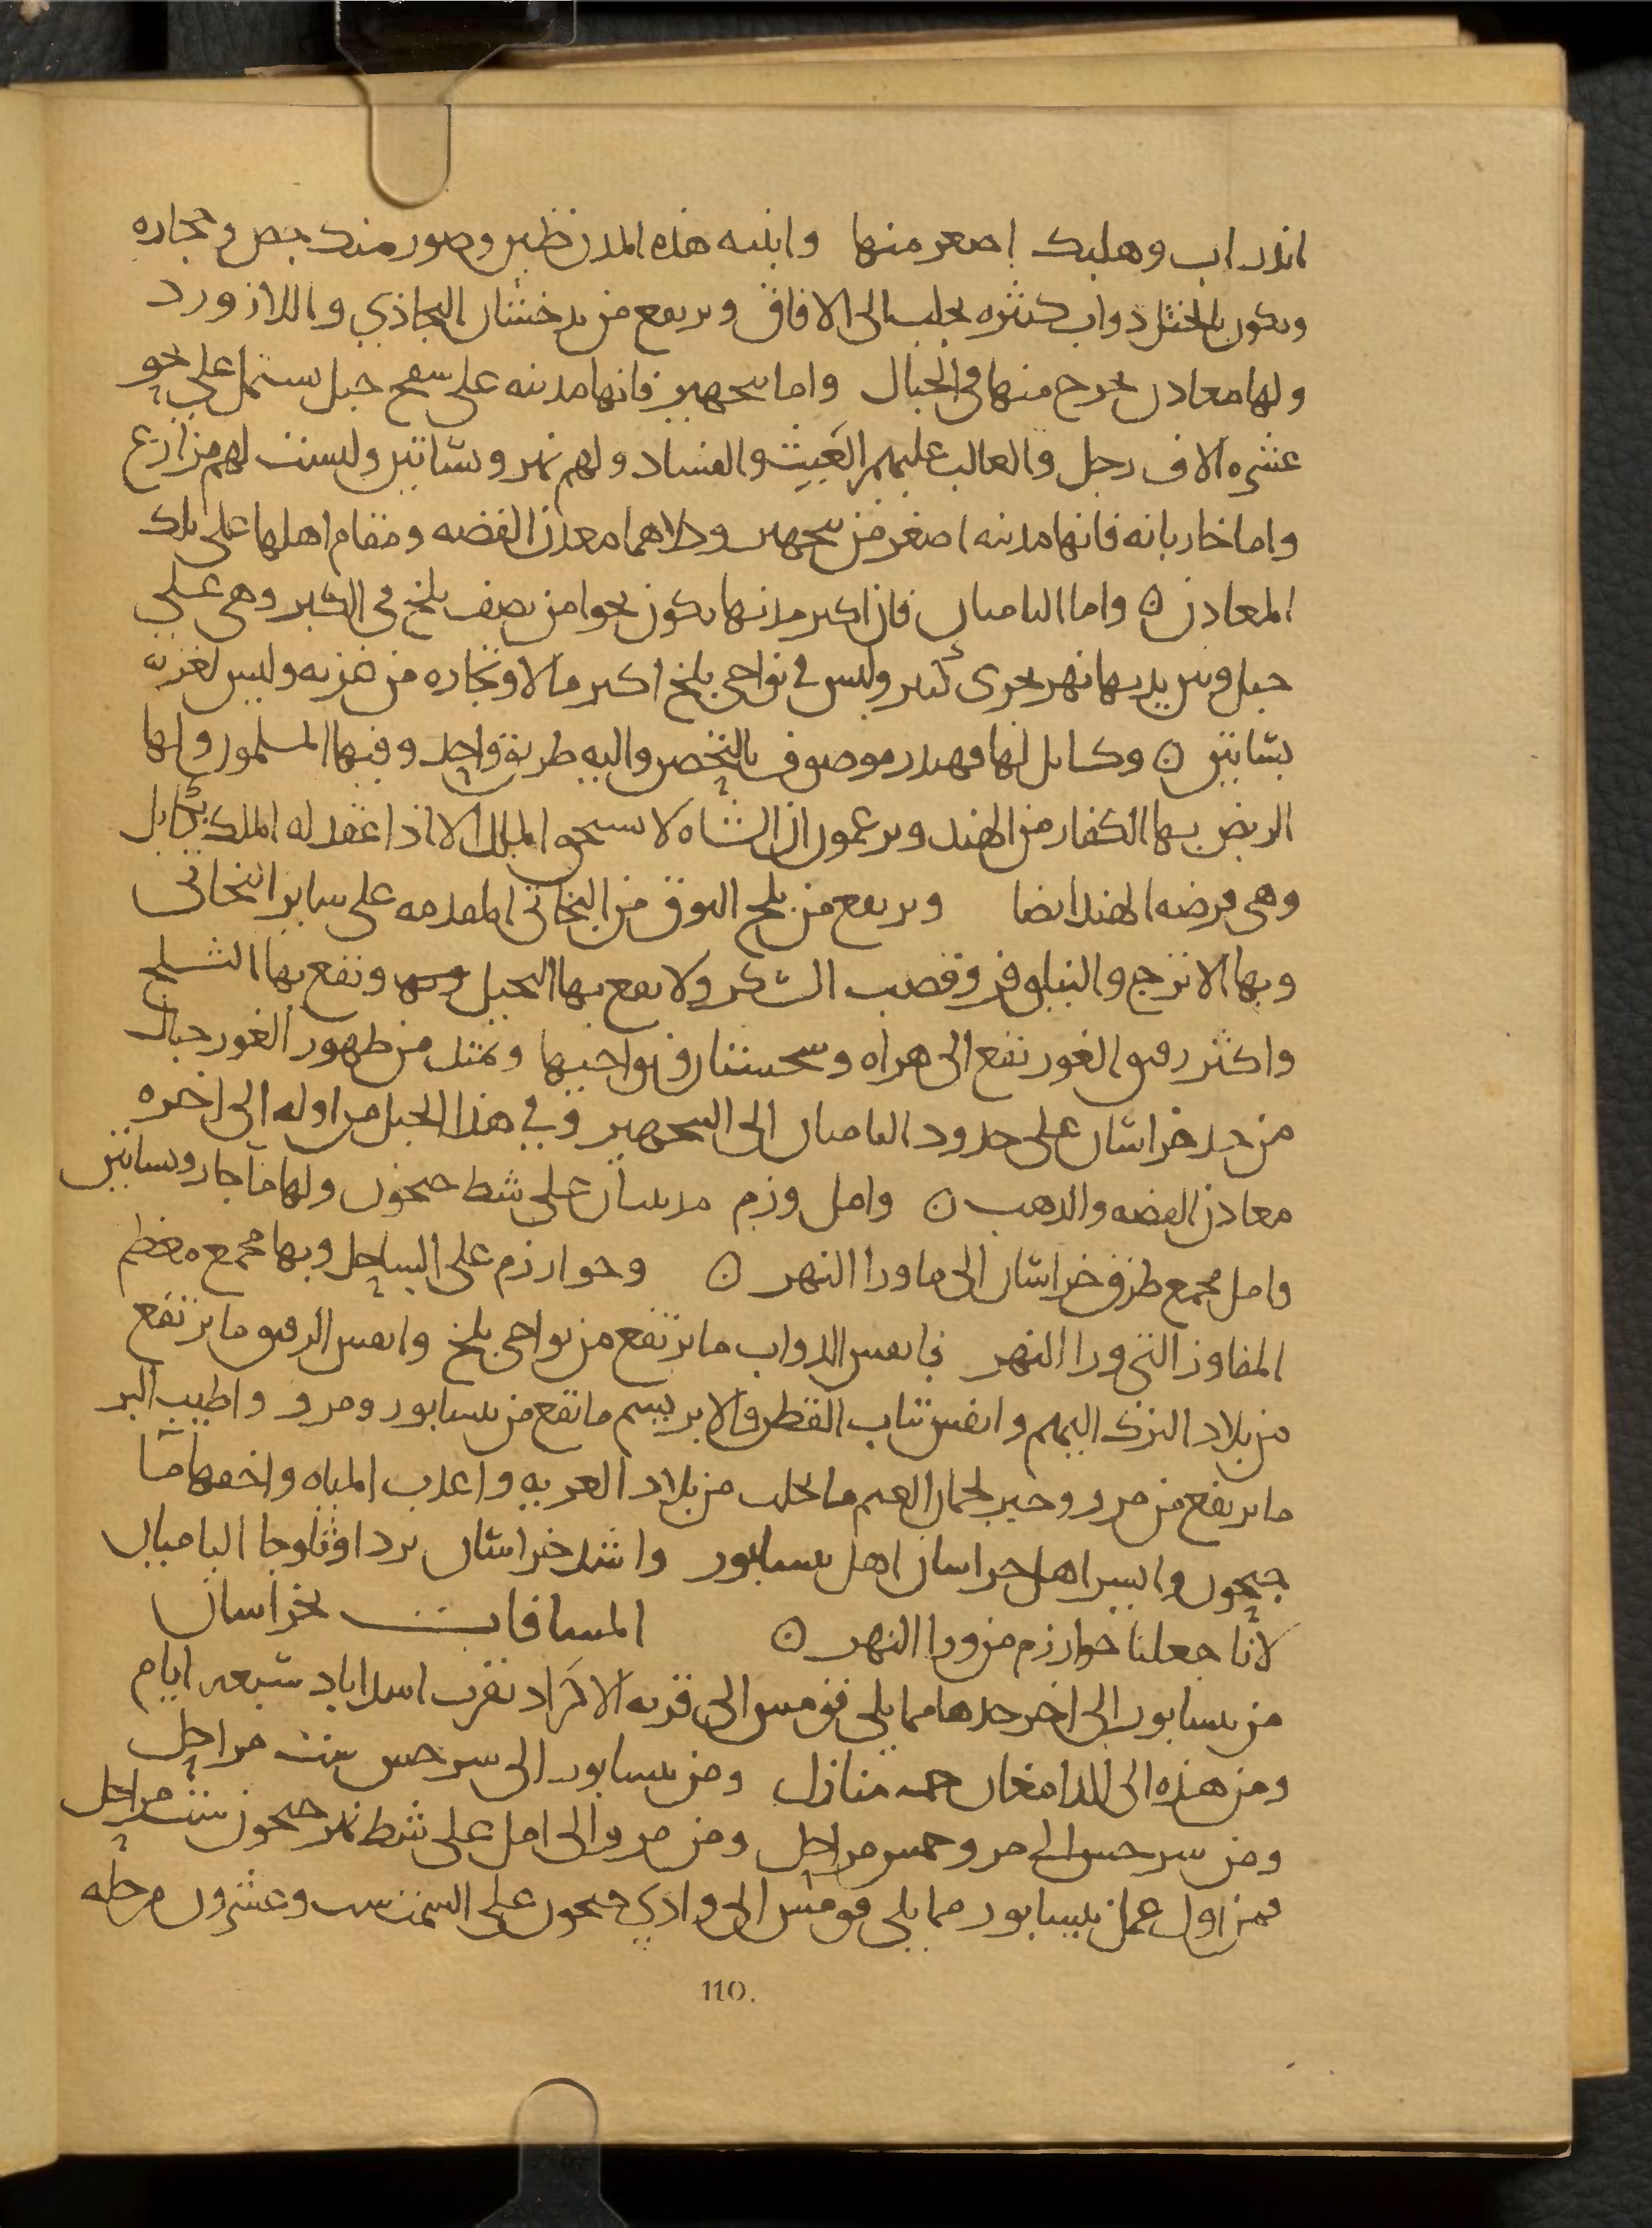 اندراب وهلبك اصغر منها وابنيه هذه المدن طين وصور مندر بجص وحجاره
ويكون بالختل دواب كثيره تجلب الى الافاق ويرتفع من بدخشان البجاذي واللازورد
ولها معادن تخرج منها في الجبال واما بنجهير فانها مدينه على سفح جبل يشتمل على نحو
عشره الاف رجل والغالب عليهم العَبَث والفساد ولهم نهر وبساتين وليست لهم مزارع
واما خاربانه فانها مدينه اصغر من بنجهير وكلاهما معدن الفضه ومقام اهلها على تلك
المعادن ٥ واما الباميان فان اكبر مدنها يكون نحوا من نصف بلخ في الكبر وهى على
جبل وبين يديها نهر يجرى كبير وليس في نواحي بلخ اكبر مالا وتجاره من غزنه وليس لغزنه
بساتين ٥ وكابل لها قهندز موصوف بالتحصن واليه طريق واحد وفيها المسلمون ولها
الربض بها الكفار من الهند ويزعمون ان الشاه لا يستحق الملك الا اذا عقد له الملك بكابل
وهى فرضه الهند ايضا ويرتفع من بلخ النوق من البخاتي المقدمه على ساير البخاتى
وبها الاترج والنيلوفر وقصب السكر ولا يقع بها النخيل وتقع بها الثلج
واكثر رقيق الغور تقع الى هراه وسجستان ونواحيها وتمتد من ظهور الغور جبال
من حد خراسان على حدود الباميان الى البنجهير وفي هذا الجبل من اوله الى اخره
معادن الفضه والذهب ٥ وامل وزم مدينتان على شط جيحون ولها ماء جار وبساتين
وامل مجمع طرق خراسان الى ما ورا النهر ٥ وخوارزم على الساحل وبها مجمع معظم
المفاوز التي ورا النهر فانفس الدواب ما يرتفع من نواحي بلخ وانفس الرقيق ما يرتفع
من بلاد الترك اليهم وانفس ثياب القطن والابريسم ما تقع من نيسابور ومرو واطيب البز
ما يرتفع من مرو وخير لحمان الغنم ما يجلب من بلاد الغزيه واعذب المياه واخفها ما
جيحون وايسر اهل خراسان اهل نيسابور واشد خراسان بردا وثلوجا الباميان
لانا جعلنا خوارزم من ورا النهر ٥ المسافات بخراسان
من نيسابور الى اخر حدها مما يلي قومس الى قريه الاكراد بقرب اسداباد سبعه ايام
ومن هذه الى الدامغان خمسه منازل ومن نيسابور الى سرخس ست مراحل
ومن سرخس الى مرو خمس مراحل ومن مرو الى امل على شط نهر جيحون ست مراحل
فمن اول عمل نيسابور مما يلي قومس الى وادي جيحون على السمت ست وعشرون مرحله
110.